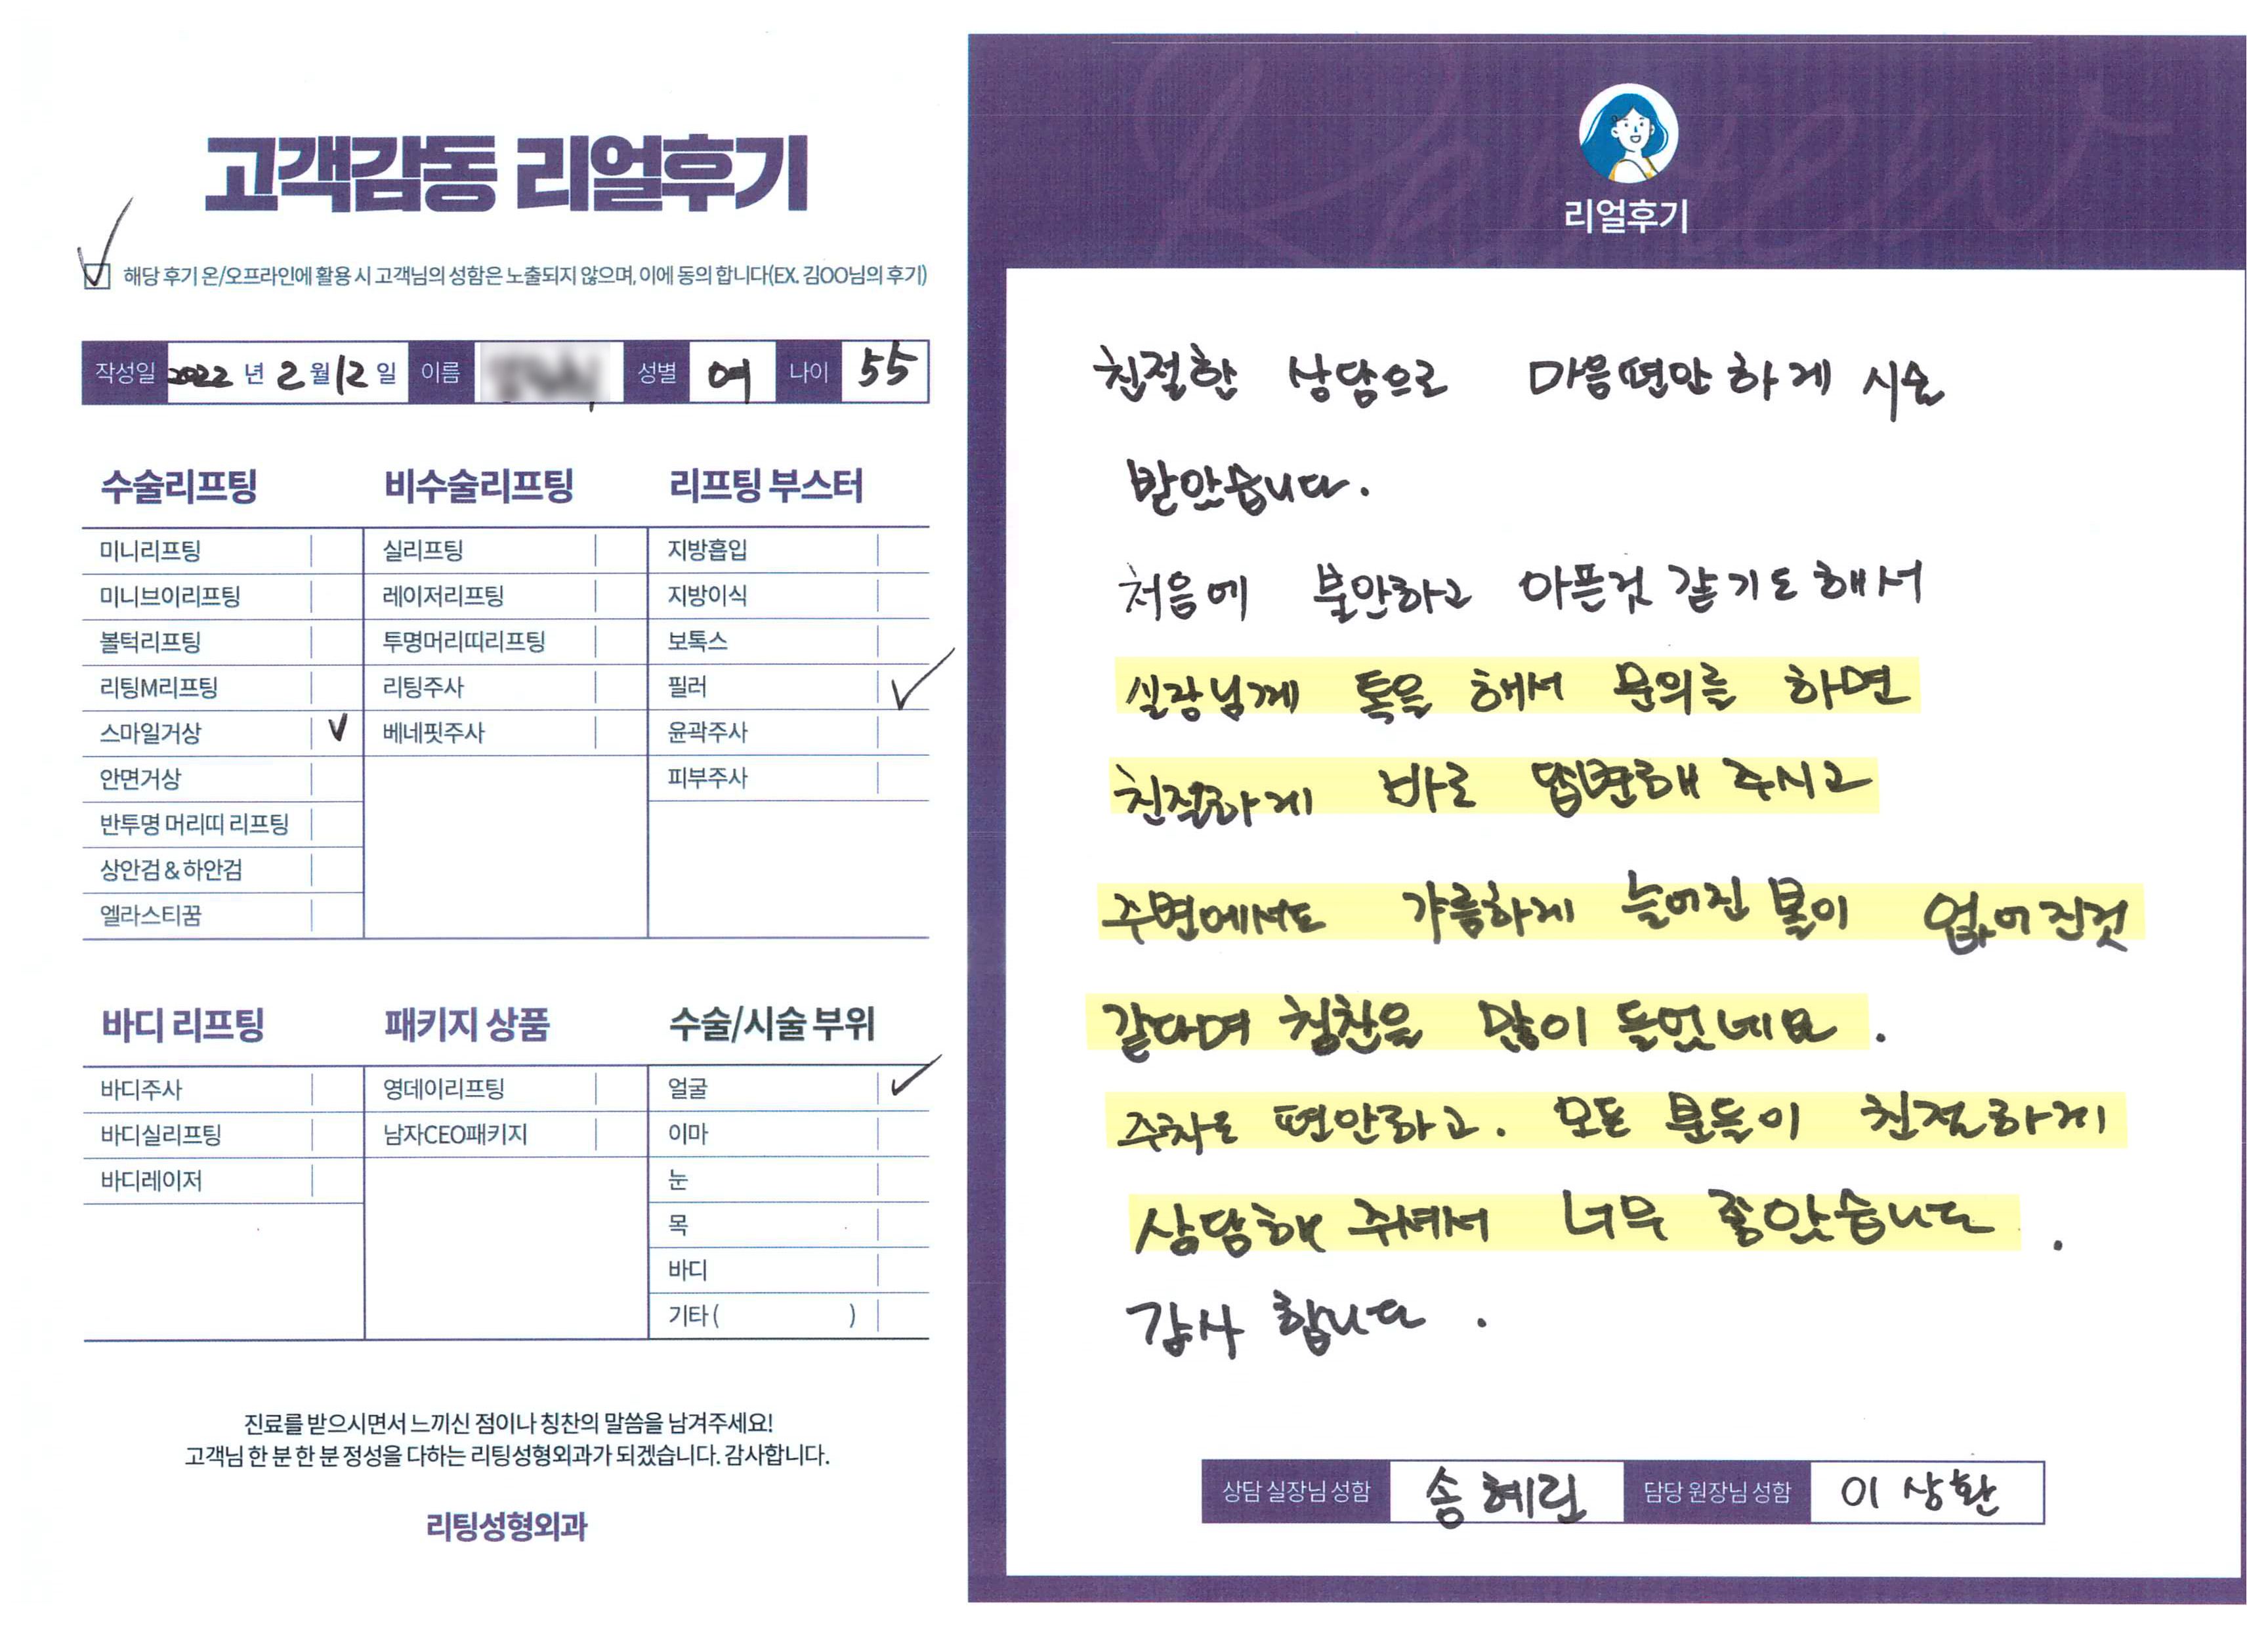 고객감동 리얼후기
해당 후기 온/오프라인에 활용 시 고객님의 성함은 노출되지 않으며, 이에 동의 합니다(EX. 김OO님의 후기)
작성일 2022 년 2 월 12 일 이름 성별 여 나이 55
수술리프팅
미니리프팅
미니브이리프팅
볼턱리프팅
리팅M리프팅
스마일거상
안면거상
반투명 머리띠 리프팅
상안검 & 하안검
엘라스티꿈
비수술리프팅
실리프팅
레이저리프팅
투명머리띠리프팅
리팅주사
베네핏주사
리프팅 부스터
지방흡입
지방이식
보톡스
필러
윤곽주사
피부주사
바디 리프팅
바디주사
바디실리프팅
바디레이저
패키지 상품
영데이리프팅
남자CEO패키지
수술/시술 부위
얼굴
이마
눈
목
바디
기타 ( )
진료를 받으시면서 느끼신 점이나 칭찬의 말씀을 남겨주세요!
고객님 한 분 한 분 정성을 다하는 리팅성형외과가 되겠습니다. 감사합니다.
리팅성형외과
리얼후기
친절한 상담으로 마음편안하게 시술
받았습니다.
처음에 불안하고 아픈것 같기도 해서
실장님께 톡을 해서 문의를 하면
친절하게 바로 답변해 주시고
주변에서도 갸름하게 늘어진 볼이 없어진것
같다며 칭찬을 많이 들었네요.
주차도 편안하고. 모든 분들이 친절하게
상담해 주셔서 너무 좋았습니다.
감사 합니다.
상담 실장님 성함 송혜린 담당 원장님 성함 이상환